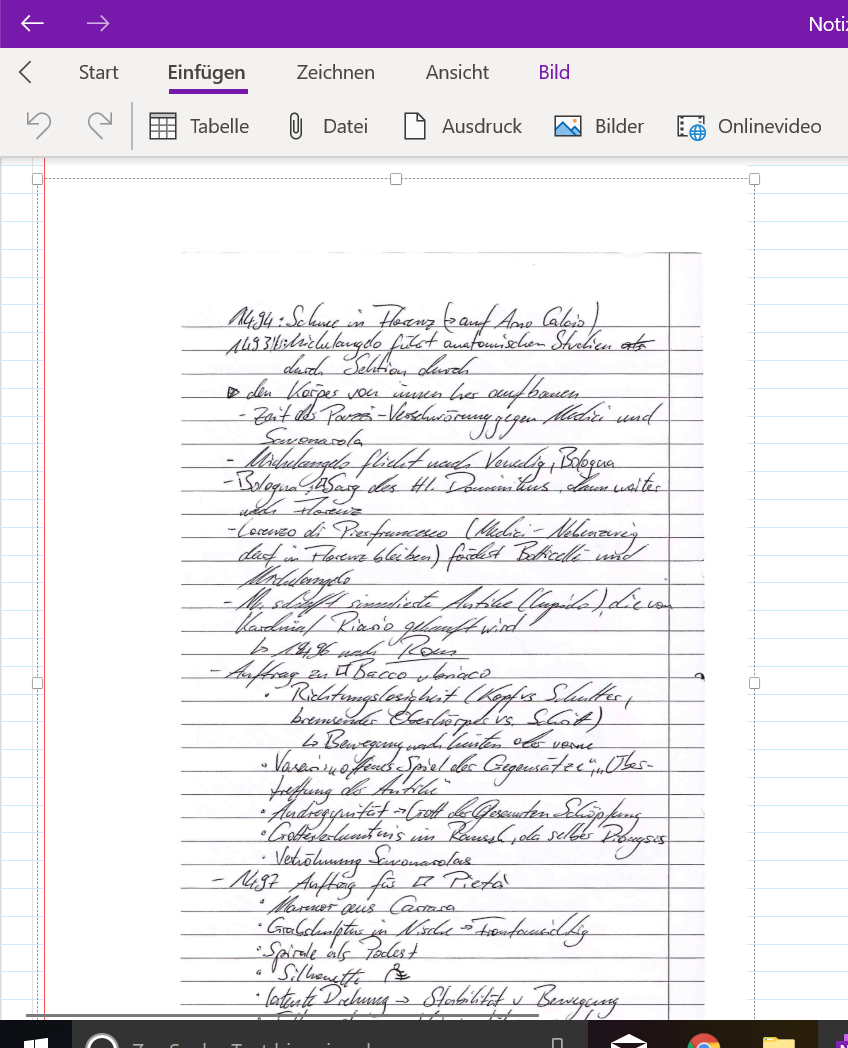 Notiz
Start Einfügen Zeichnen Ansicht Bild
Tabelle Datei Ausdruck Bilder Onlinevideo
1494: Schnee in Florenz (→ auf Arno Calcio)
Michelangelo führt anatomischen Studien
durch Sektion durch
den Körper von innen her aufbauen
- Zeit der Pazzi-Verschwörung gegen Medici und
Savonarola
- Michelangelo flieht nach Venedig, Bologna
- Bologna: Sarg des Hl. Dominikus, dann weiter
nach Florenz
- Lorenzo di Pierfrancesco (Medici-Nebenzweig
darf in Florenz bleiben) fördert Botticelli und
Michelangelo
- M. schafft simulierte Antike (Cupido), die von
Kardinal Riario gekauft wird
↳ 1496 nach Rom
- Auftrag zu Bacco ubriaco
• Richtungslosigkeit (Kopf vs Schulter,
bremsender Oberkörper vs. Schritt)
↳ Bewegung nach hinten oder vorne
• Vasari: "offenes Spiel der Gegensätze", "Über-
treffung der Antike"
• Androgynität → Gott der Gesamten Schöpfung
• Gotteserkenntnis im Rausch, da selber Dionysos
• Verhöhnung Savonarolas
- 1497 Auftrag für Pietà
• Marmor aus Carrara
• Grabskulptur in Nische → Frontansichtig
• Spirale als Podest
• Silhouette
• latente Drehung → Stabilität v Bewegung